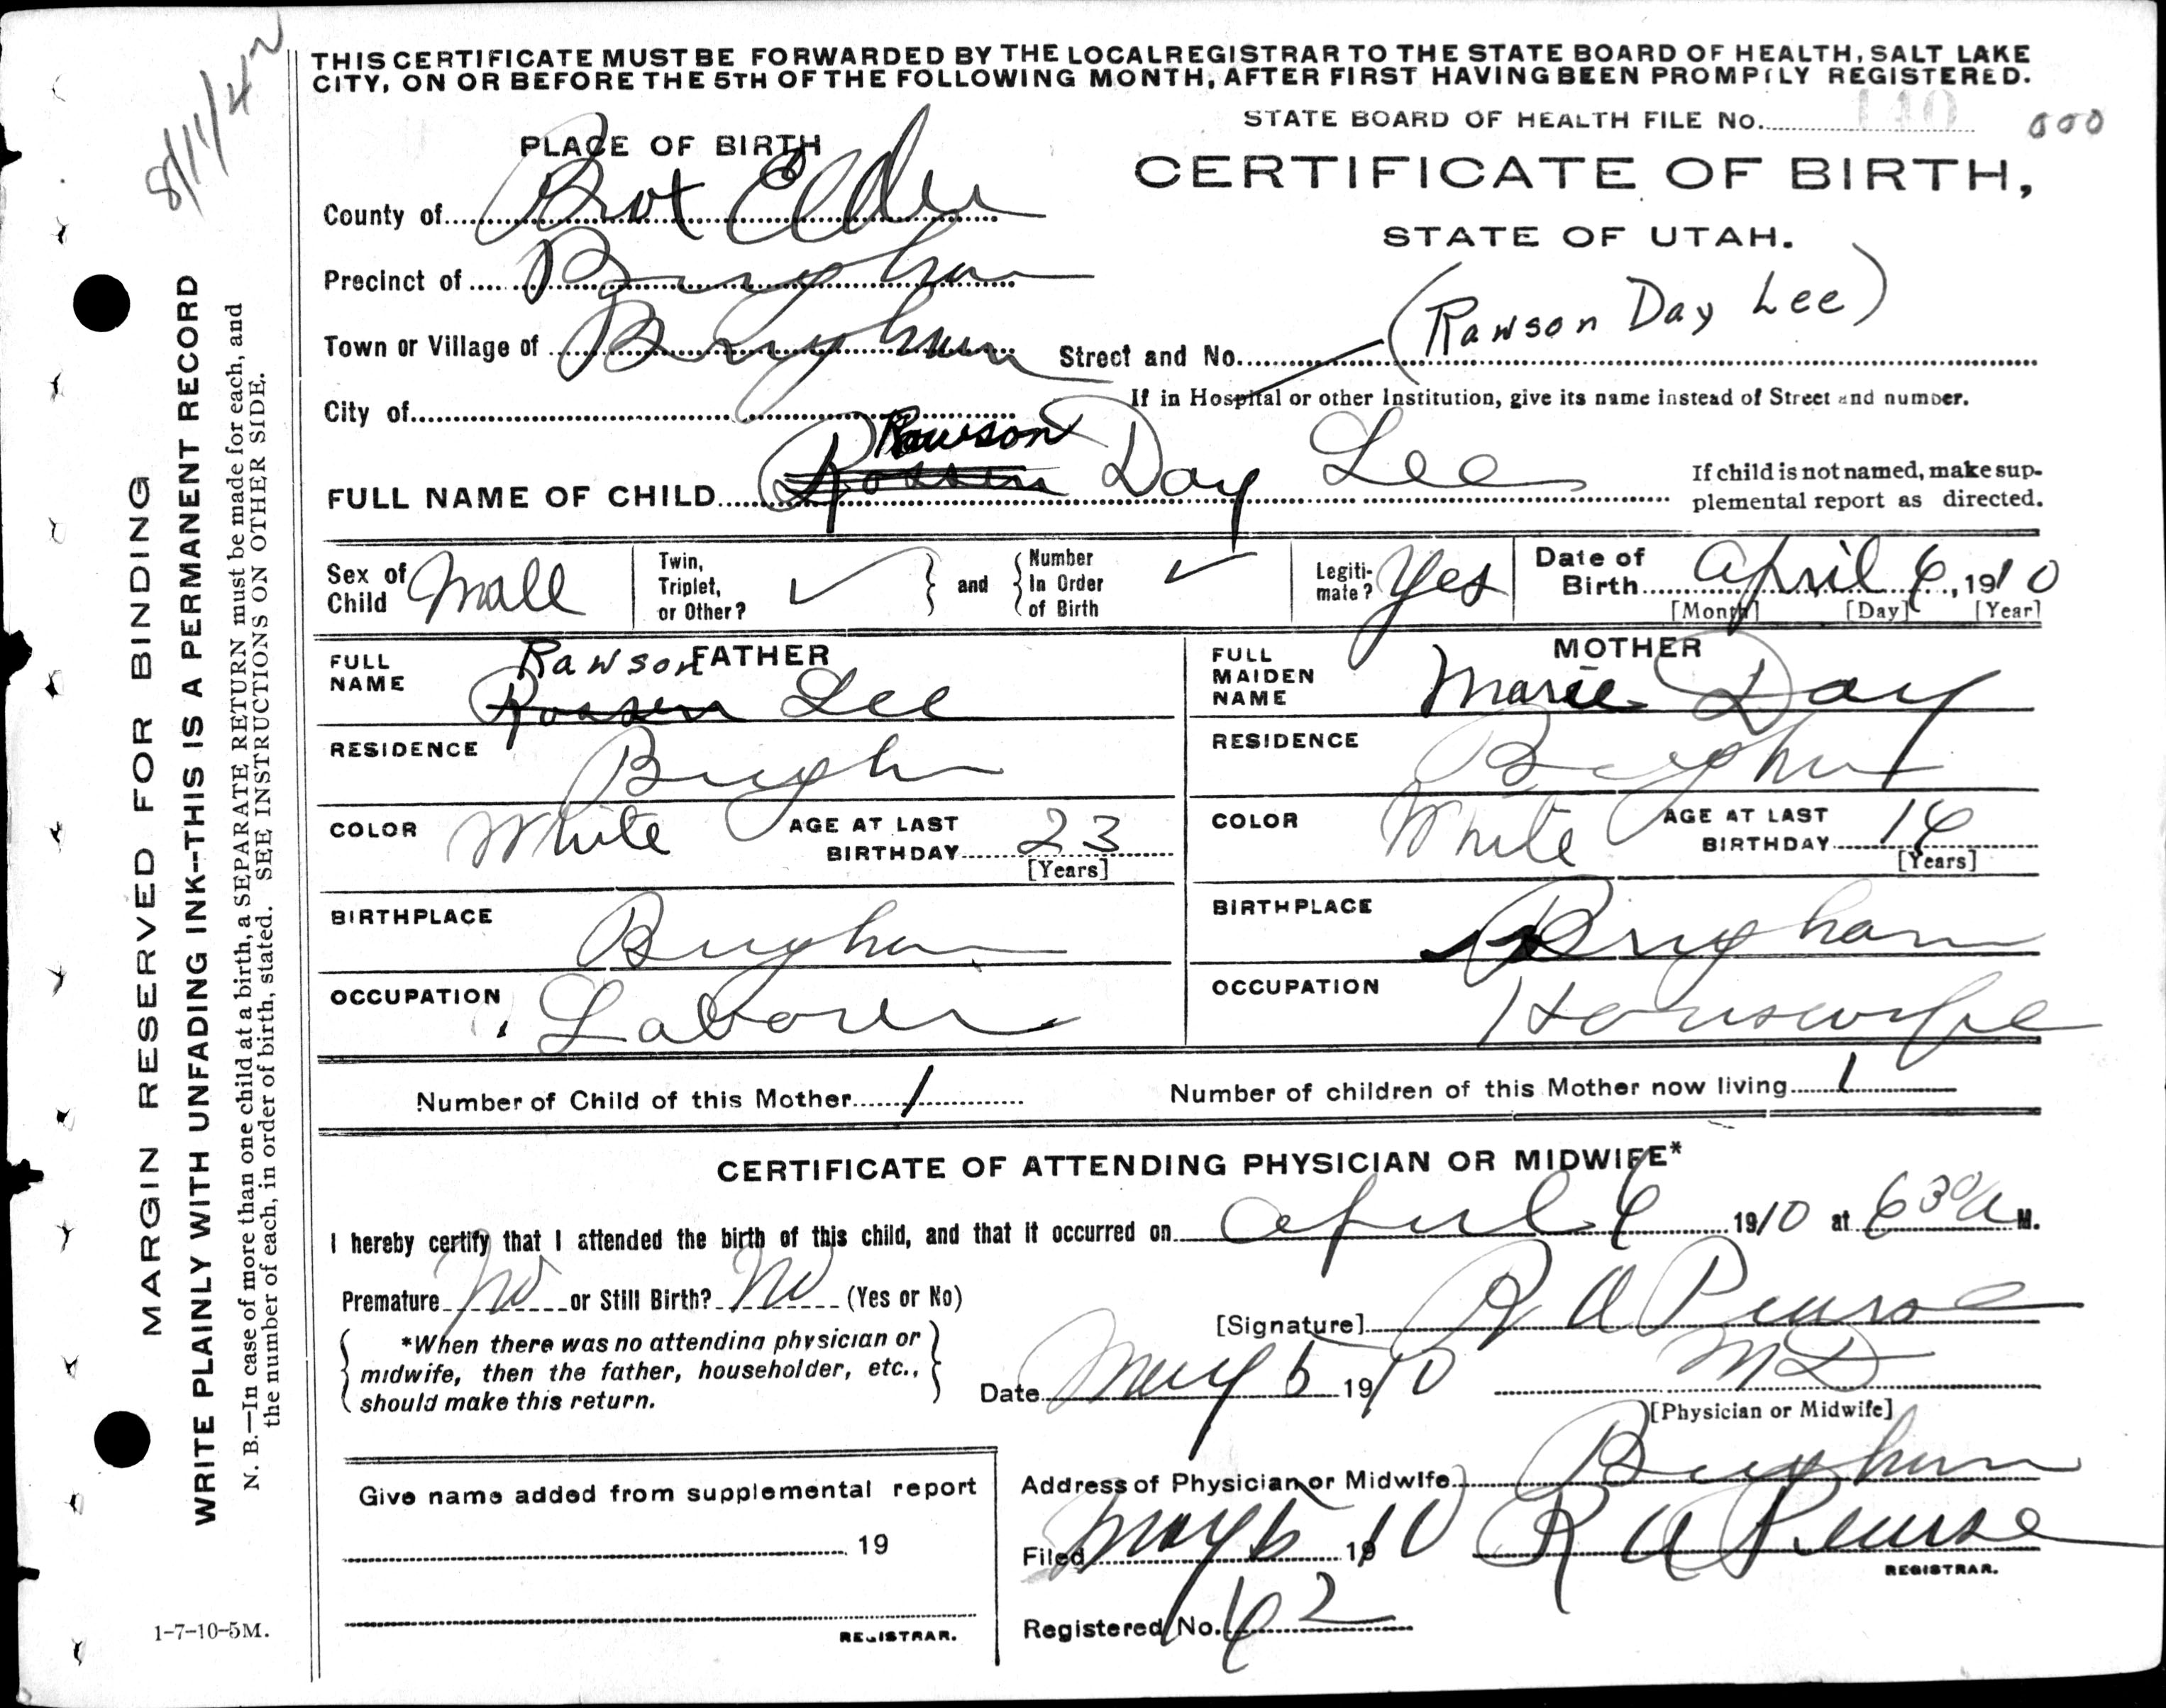 8/11/42
THIS CERTIFICATE MUST BE FORWARDED BY THE LOCAL REGISTRAR TO THE STATE BOARD OF HEALTH, SALT LAKE
CITY, ON OR BEFORE THE 5TH OF THE FOLLOWING MONTH, AFTER FIRST HAVING BEEN PROMPTLY REGISTERED.
STATE BOARD OF HEALTH FILE No. 110 000
PLACE OF BIRTH
CERTIFICATE OF BIRTH,
STATE OF UTAH.
County of Box Elder
Precinct of Brigham
(Rawson Day Lee)
Town or Village of Brigham Street and No.
City of If in Hospital or other Institution, give its name instead of Street and number.
Rawson
FULL NAME OF CHILD Rossen Day Lee
If child is not named, make sup-
plemental report as directed.
Sex of Child Male
Twin, Triplet, or Other? ✓ } and { Number In Order of Birth ✓
Legiti-mate? Yes
Date of Birth April 6, 1910
[Month] [Day] [Year]
FATHER
FULL NAME Rawson Rossen Lee
MOTHER
FULL MAIDEN NAME Marie Day
RESIDENCE Brigham
RESIDENCE Brigham
COLOR White AGE AT LAST BIRTHDAY 23 [Years]
COLOR White AGE AT LAST BIRTHDAY 16 [Years]
BIRTHPLACE Brigham
BIRTHPLACE Brigham
OCCUPATION Laborer
OCCUPATION Housewife
Number of Child of this Mother 1 Number of children of this Mother now living 1
CERTIFICATE OF ATTENDING PHYSICIAN OR MIDWIFE*
I hereby certify that I attended the birth of this child, and that it occurred on April 6 1910 at 6 30 A M.
Premature No or Still Birth? No (Yes or No)
[Signature] R A Pearse
*When there was no attending physician or
midwife, then the father, householder, etc.,
should make this return.
Date May 5 1910 MD
[Physician or Midwife]
Address of Physician or Midwife Brigham
Give name added from supplemental report
19
REGISTRAR.
Filed May 5 1910 R A Pearse
REGISTRAR.
Registered No. 62
MARGIN RESERVED FOR BINDING
WRITE PLAINLY WITH UNFADING INK--THIS IS A PERMANENT RECORD
N. B.—In case of more than one child at a birth, a SEPARATE RETURN must be made for each, and
the number of each, in order of birth, stated. SEE INSTRUCTIONS ON OTHER SIDE.
1-7-10-5M.